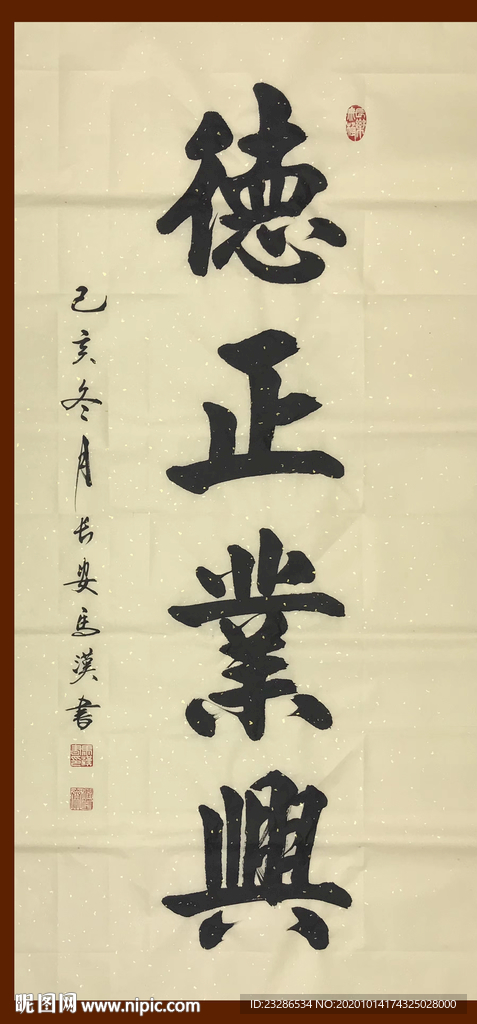 德正業興
己亥冬月长安馬漢書
昵图网 www.nipic.com
ID:23286534 NO:20201014174325028000